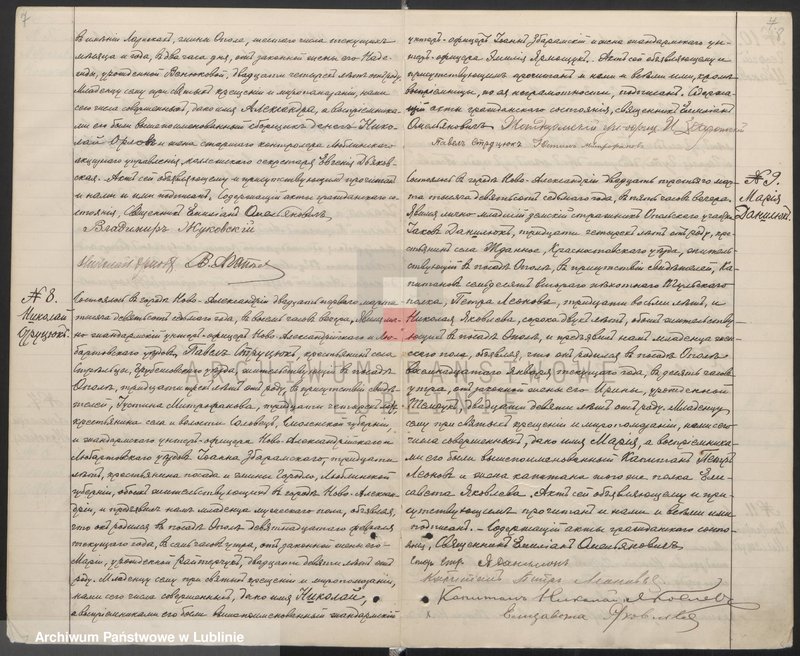 7
въ имѣніи Ладикахъ, гмины Ополе, шестаго числа текущихъ
мѣсяца и года, въ два часа дня, отъ законной жены его Наде-
жды, урожденной двадцати четырехъ лѣтъ отъ роду.
Младенцу сему при святомъ крещеніи и миропомазаніи, нами
сего числа совершонныхъ, дано имя Александръ, а воспріемника-
ми его были вышепоименованный сборщикъ денегъ Нико-
лай Орловъ и жена старшаго контролера Люблинскаго
акцизнаго управленія, коллежскаго секретаря Евгенія
ская. Актъ сей объявляющему и присутствующимъ прочитанъ
и нами и ими подписанъ. Содержащій акты гражданскаго со-
стоянія, Священникъ Емиліанъ
Владимиръ Жуковскій
Николай Орловъ
№ 8.
Николай
Струцюкъ
Состоялось въ городѣ Ново-Александріи двадцать перваго марта
тысяча девятьсотъ седьмого года, въ восемь часовъ вечера. Явился лич-
но жандармскій унтеръ-офицеръ Ново-Александрійскаго и Лю-
бартовскаго уѣздовъ, Павелъ Струцюкъ, крестьянинъ села
Стрѣльцы, Грубешовскаго уѣзда, жительствующій въ посадѣ
Ополѣ, тридцати трехъ лѣтъ отъ роду въ присутствіи свидѣ-
телей, Устина Митрофанова, тридцати четырехъ лѣтъ,
крестьянина села и волости Соловецъ, Смоленской губерніи,
и жандармскаго унтеръ-офицера Ново-Александрійскаго и
Любартовскаго уѣздовъ Іоанна Збарамскаго, тридцати
лѣтъ, крестьянина посада и гмины Городло, Люблинской
губерніи, обоихъ жительствующихъ въ городѣ Ново-Алексан-
дріи, и предъявилъ намъ младенца мужескаго пола, объявляя,
что онъ родился въ посадѣ Ополѣ девятнадцатаго февраля
текущаго года, въ семь часовъ утра, отъ законной жены его
Маріи, урожденной двадцати девяти лѣтъ отъ
роду. Младенцу сему при святомъ крещеніи и миропомазаніи,
нами сего числа совершонныхъ, дано имя Николай,
а воспріемниками его были вышепоименованный жандармскій
унтеръ-офицеръ Іоаннъ Збарамскій и жена жандармскаго ун-
теръ-офицера Эмилія Актъ сей объявляющему и
присутствующимъ прочитанъ и нами и всѣми ими, кромѣ
воспріемницы, по ея неграмотности, подписанъ. Содержа-
щій акты гражданскаго состоянія, Священникъ Емиліанъ
Жандармскій унт-офицеръ И.
Павелъ Струцюкъ Устинъ Митрофановъ
№ 9.
Марія
Данилюкъ
Состоялось въ городѣ Ново-Александріи двадцать третьяго мар-
та тысяча девятьсотъ седьмого года, въ пять часовъ вечера.
Явился лично младшій земскій стражникъ Опольскаго участка
Яковъ Данилюкъ, тридцати четырехъ лѣтъ отъ роду, кре-
стьянинъ села Жданное, Красноставскаго уѣзда, житель-
ствующій въ посадѣ Ополѣ, въ присутствіи свидѣтелей, Ка-
питановъ семьдесятъ второго пѣхотнаго Тульскаго
полка, Петра Леонова, тридцати восьми лѣтъ, и
Николая Яковлева, сорока двухъ лѣтъ, обоихъ жительству-
ющихъ въ посадѣ Ополѣ, и предъявилъ намъ младенца жен-
скаго пола, объявляя, что онъ родился въ посадѣ Ополѣ
восемнадцатаго Января текущаго года, въ десять часовъ
утра, отъ законной жены его Ирины, урожденной
двадцати девяти лѣтъ отъ роду. Младенцу
сему при святомъ крещеніи и миропомазаніи, нами сего
числа совершонныхъ, дано имя Марія, а воспріемника-
ми его были вышепоименованный Капитанъ Петръ
Леоновъ и жена капитана того же полка Ели-
савета Яковлева. Актъ сей объявляющему и при-
сутствующимъ прочитанъ и нами и всѣми ими
подписанъ. - Содержащій акты гражданскаго состо-
янія, Священникъ Емиліанъ
Стр. Я Данилюкъ
Капитанъ Петръ Леоновъ
Капитанъ Николай Яковлевъ
Елизавета Яковлева
ARCHIWUM PAŃSTWOWE
W LUBLINIE
Archiwum Państwowe w Lublinie